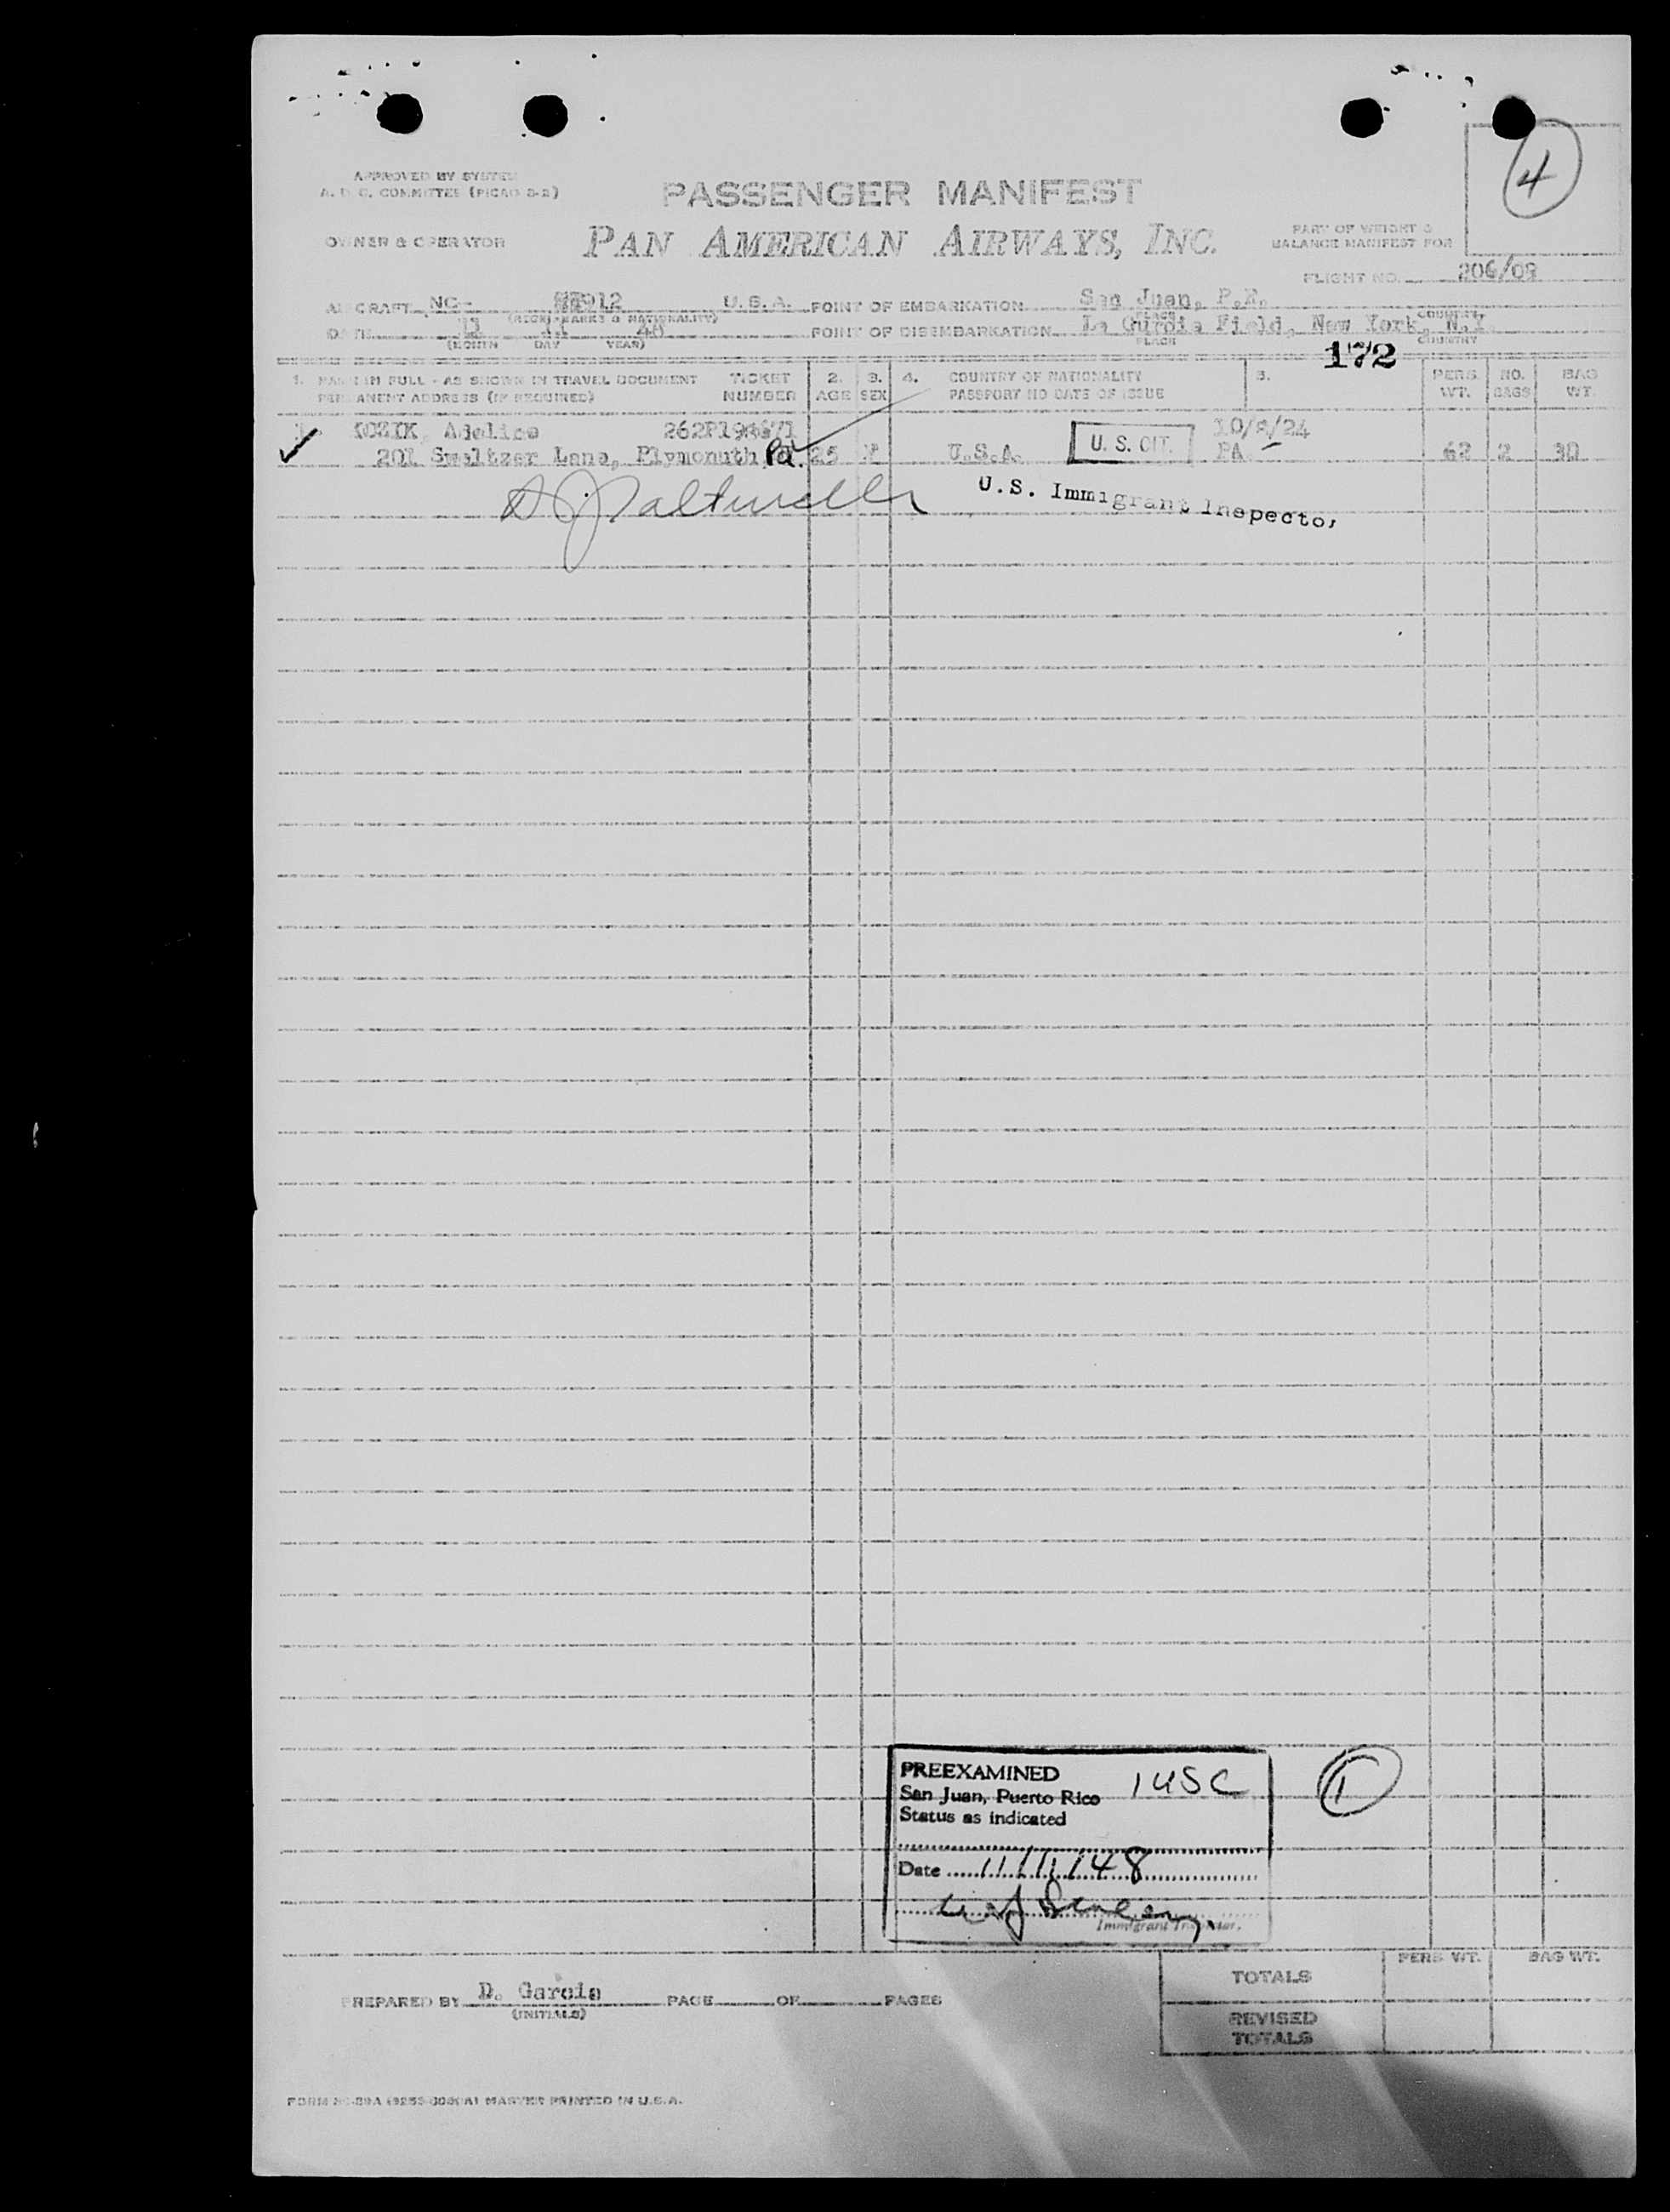 4
APPROVED BY SYSTEM
A. D. C. COMMITTEE (PICAO 3-2)
PASSENGER MANIFEST
OWNER & OPERATOR PAN AMERICAN AIRWAYS, INC.
PART OF WEIGHT &
BALANCE MANIFEST FOR
FLIGHT NO. 206/09
AIRCRAFT NC- 912 U.S.A. POINT OF EMBARKATION San Juan, P.R.
(REGN. MARKS & NATIONALITY) PLACE COUNTRY
DATE 11 11 48 POINT OF DISEMBARKATION La Gurdia Field, New York, N.Y.
(MONTH DAY YEAR) PLACE COUNTRY
172
1. NAME IN FULL - AS SHOWN IN TRAVEL DOCUMENT TICKET 2. 3. 4. COUNTRY OF NATIONALITY 5. PERS. NO. BAG
PERMANENT ADDRESS (IF REQUIRED) NUMBER AGE SEX PASSPORT NO DATE OF ISSUE WT. BAGS WT.
KOZIK, 10/2/24
201 Sweltzer Lane, Plymonuth Pa. 25 F U.S.A. U. S. CIT. PA 62 2 30
U.S. Immigrant Inspector
PREEXAMINED 1 USC
San Juan, Puerto Rico
Status as indicated
1
Date 11/11/48
Immigrant Inspector.
TOTALS PERS WT. BAG WT.
PREPARED BY D. Garcia PAGE OF PAGES
(INITIALS)
REVISED
TOTALS
MASTER PRINTED IN U.S.A.